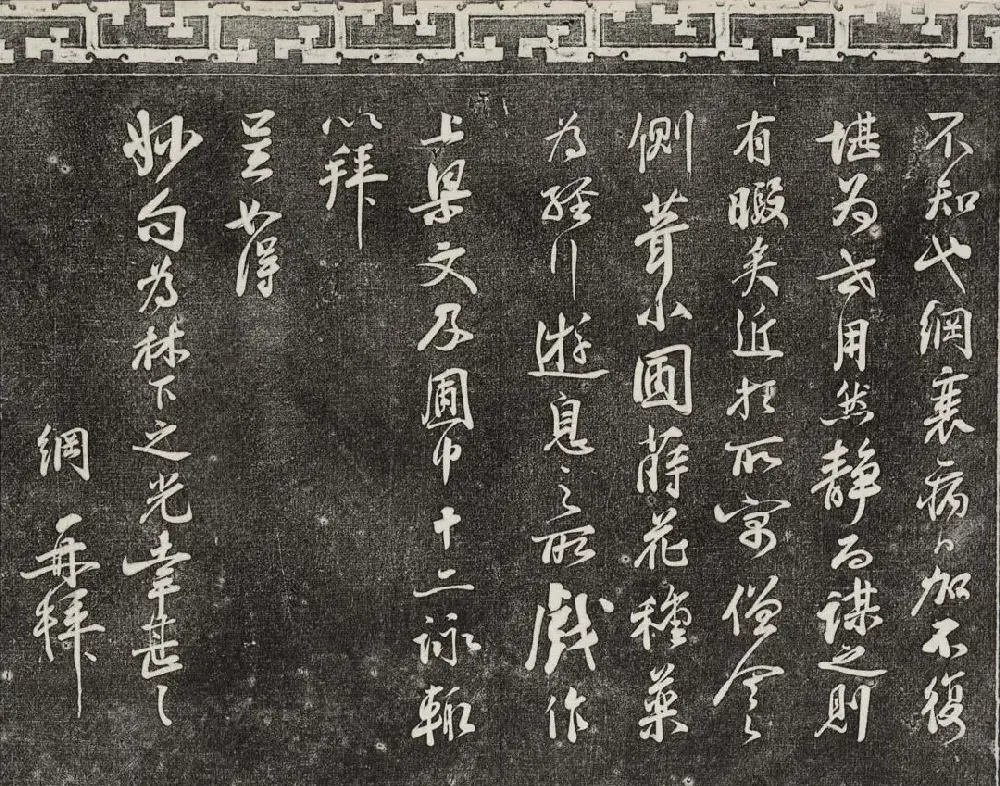 不知也綱衰病日加不復
堪為世用然静而謀之則
有暇矣近於所寓僧舍之
側葺小圃蒔花種藥
為經行遊息之所戲作
上梁文及圃中十二詠輒
以拜
呈如得
妙句為林下之光幸甚々
綱再拜